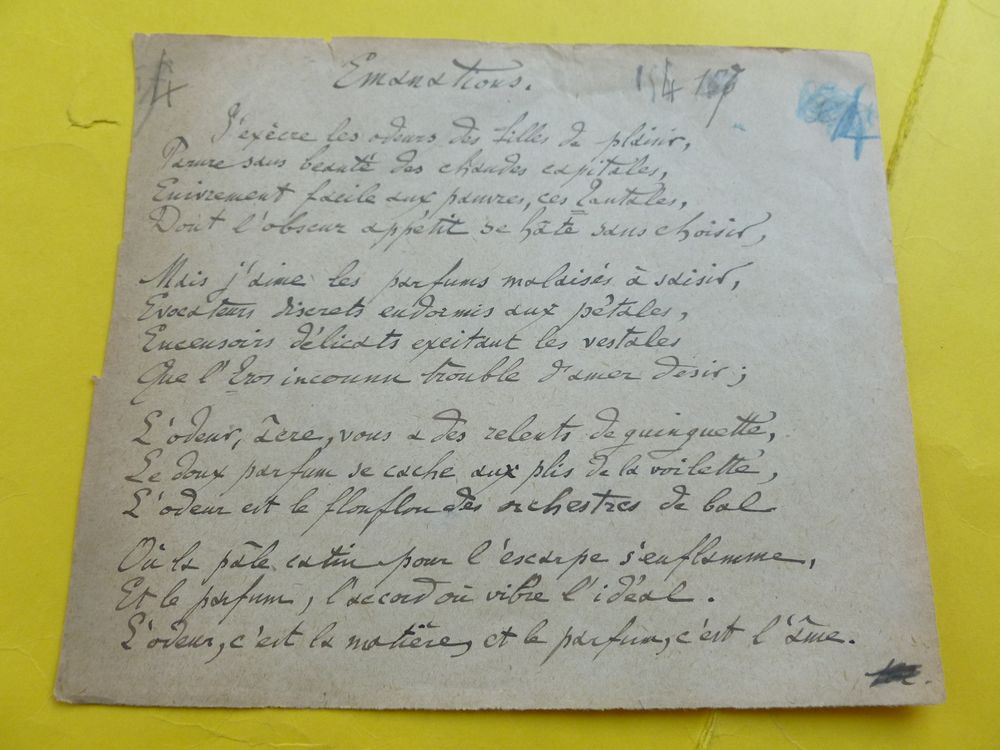 4
Emanations.
154 157
4
J'exècre les odeurs des filles de plaisir,
Parure sans beauté des chaudes capitales,
Enivrement facile aux pauvres, ces Tantales,
Dont l'obscur appétit se hâte sans choisir,
Mais j'aime les parfums malaisés à saisir,
Evocateurs discrets endormis aux pétales,
Encensoirs délicats excitant les vestales
Que l'Eros inconnu trouble d'amer désir ;
L'odeur, âcre, vous a des relents de guinguette,
Le doux parfum se cache aux plis de la voilette,
L'odeur est le flonflon des orchestres de bal
Où la pâle catin pour l'escarpe s'enflamme,
Et le parfum, l'accord où vibre l'idéal.
L'odeur, c'est la matière, et le parfum, c'est l'âme.